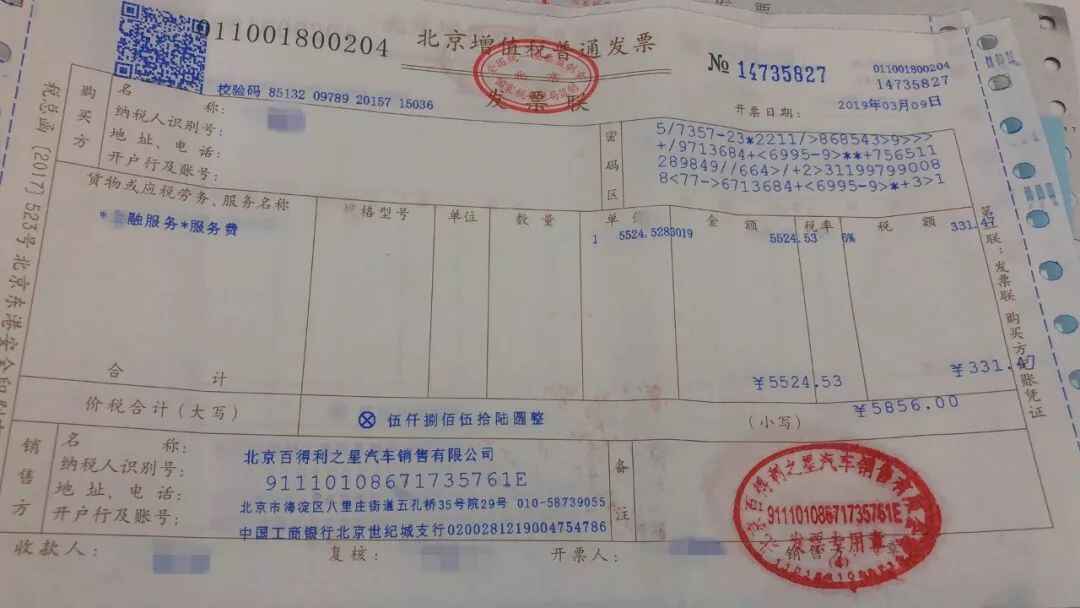 011001800204
北京增值税普通发票
发票联
№ 14735827
011001800204
14735827
校验码 85132 09789 20157 15036
开票日期: 2019年03月09日
购买方
名 称:
纳税人识别号:
地 址、电 话:
开户行及账号:
密码区
5/7357-23*2211/>868543>9>>>
+/9713684+<6995-9>**+756511
289849//664>/+2>31199799008
8<77->6713684+<6995-9>*+3>1
货物或应税劳务、服务名称 规格型号 单位 数 量 单 价 金 额 税率 税 额
*融服务*服务费 1 5524.5283019 5524.53 6% 331.47
合 计 ¥5524.53 ¥331.47
价税合计(大写) ⊗ 伍仟捌佰伍拾陆圆整 (小写) ¥5856.00
销售方
名 称: 北京百得利之星汽车销售有限公司
纳税人识别号: 91110108671735761E
地 址、电 话: 北京市海淀区八里庄街道五孔桥35号院29号 010-58739055
开户行及账号: 中国工商银行北京世纪城支行0200281219004754786
备注
收款人: 复核: 开票人: 销售方:(章)
北京百得利之星汽车销售有限公司
91110108671735761E
发票专用章
税总函〔2017〕523号北京东港安全印刷
第二联:发票联 购买方记账凭证